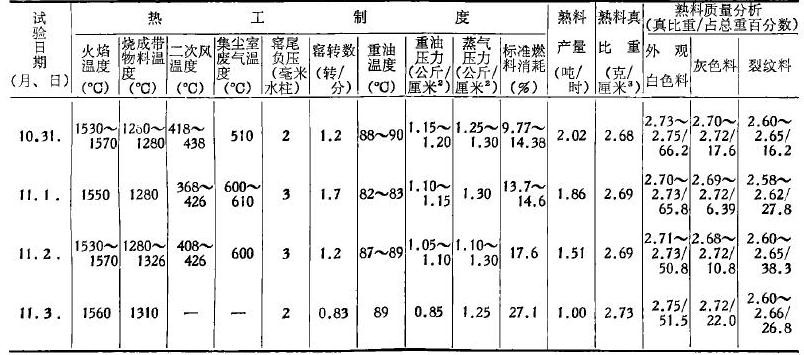 试验日期(月、日) 热工制度 熟料产量(吨/时) 熟料真比重(克/厘米³) 熟料质量分析(真比重/占总重百分数)
火焰温度(℃) 烧成带物料温度(℃) 二次风温度(℃) 集尘室废气温度(℃) 窑尾负压(毫米水柱) 窑转数(转/分) 重油温度(℃) 重油压力(公斤/厘米²) 蒸气压力(公斤/厘米²) 标准燃料消耗(%) 外观白色料 灰色料 裂纹料
10.31. 1530~1570 1280 418~438 510 2 1.2 88~90 1.15~1.20 1.25~1.30 9.77~14.38 2.02 2.68 2.73~2.75/66.2 2.70~2.72/17.6 2.60~2.65/16.2
11.1. 1550 1280 368~426 600~610 3 1.7 82~83 1.10~1.15 1.30 13.7~14.6 1.86 2.69 2.70~2.73/65.8 2.69~2.72/6.39 2.58~2.62/27.8
11.2. 1530~1570 1280~1326 408~426 600 3 1.2 87~89 1.05~1.10 1.10~1.30 17.6 1.51 2.69 2.71~2.73/50.8 2.68~2.72/10.8 2.60~2.65/38.3
11.3. 1560 1310 — — 2 0.83 89 0.85 1.25 27.1 1.00 2.73 2.75/51.5 2.72/22.0 2.60~2.66/26.8